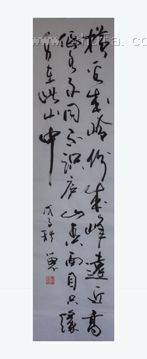 横看成岭側成峰遠近高
低各不同不识庐山真面目只缘
身在此山中
戊子